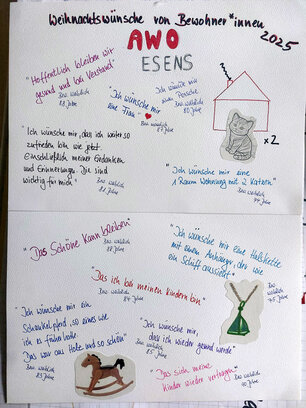 Weihnachtswünsche von Bewohner*innen
2025
AWO
ESENS
"Hoffentlich bleiben wir
gesund und bei Verstand"
Bew. weiblich
88 Jahre
"Ich wünsche mir
eine Frau"
Bew. männlich
87 Jahre
"Ich wünsche mir
Bew. weiblich
80 Jahre
"Ich wünsche mir, dass ich weiter so
zufrieden bin wie jetzt.
einschließlich meiner Gedanken
und Erinnerungen. Die sind
wichtig für mich"
Bew. weiblich
82 Jahre
x 2
"Ich wünsche mir eine
1 Raum Wohnung mit 2 Katzen"
Bew. weiblich
74 Jahre
"Das Schöne kann bleiben"
Bew. weiblich
88 Jahre
"Ich wünsche mir eine Halskette
mit einem Anhänger, der wie
ein Schiff aussieht"
Bew. weiblich
75 Jahre
"Das ich bei meinen Kindern bin"
Bew. weiblich
84 Jahre
"Ich wünsche mir ein
Schaukelpferd, so eines wie
ich es früher hatte
Das war aus Holz und so schön"
Bew. weiblich
83 Jahre
"Ich wünsche mir,
das ich wieder gesund werde"
Bew. weiblich
85 Jahre
"Das sich meine
Kinder wieder vertragen"
Bew. weiblich
90 Jahre